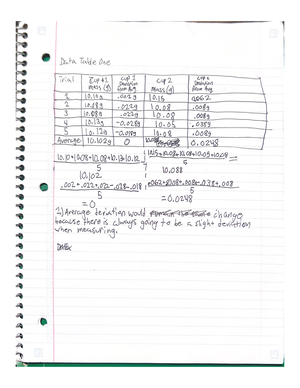 Data Table One
Trial Cup #1 Mass (g) Cup 1 Deviation from Avg Cup 2 Mass (g) Cup 2 Deviation from Avg
1 10.10g .002g 10.15 .062
2 10.08g .022g 10.08 .008g
3 10.08g .022g 10.08 .008g
4 10.13g -0.028g 10.05 .038g
5 10.12g -0.018g 10.08 .008g
Average 10.102g 0 0.0248
10.10+10.08+10.08+10.13+10.12 = 10.15+10.08+10.08+10.05+10.08 =
5 5
10.102 10.088
.002+.022+.022-.028-.018 .062+.008+.008+.038+.008
5 5
=0 =0.0248
2) Average deviation would change
because there is always going to be a slight deviation
when measuring.